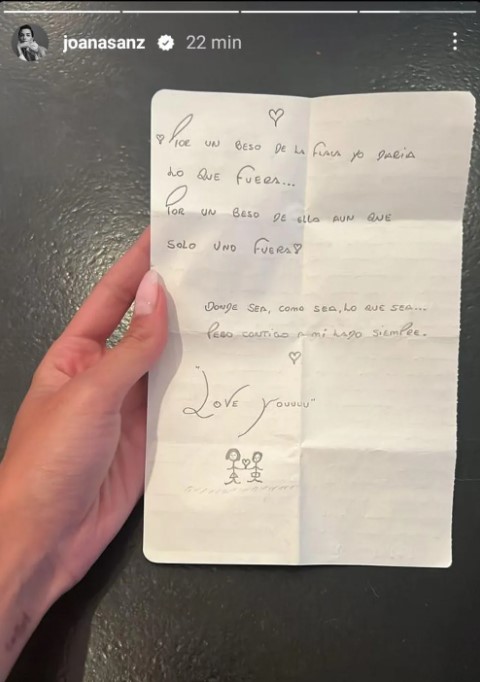 joanasanz 22 min
POR UN BESO DE LA FLACA YO DARIA
LO QUE FUERA...
POR UN BESO DE ELLA AUN QUE
SOLO UNO FUERA
DONDE SEA, COMO SEA, LO QUE SEA...
PERO CONTIGO A MI LADO SIEMPRE.
"LOVE YOUUUU"